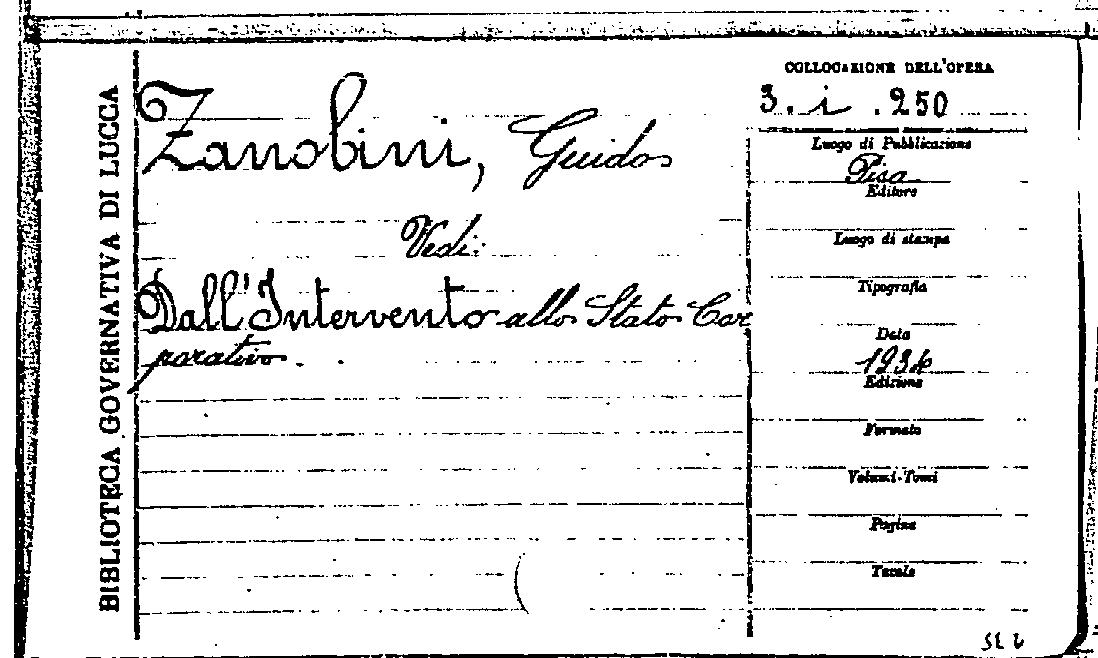 BIBLIOTECA GOVERNATIVA DI LUCCA
Zanobini, Guido
Vedi:
Dall'Intervento allo Stato Cor
porativo.
COLLOCAZIONE DELL'OPERA
3. i .250
Luogo di Pubblicazione
Pisa
Editore
Luogo di stampa
Tipografia
Data
Edizione
Formato
Volumi-Tomi
Pagine
Tavole